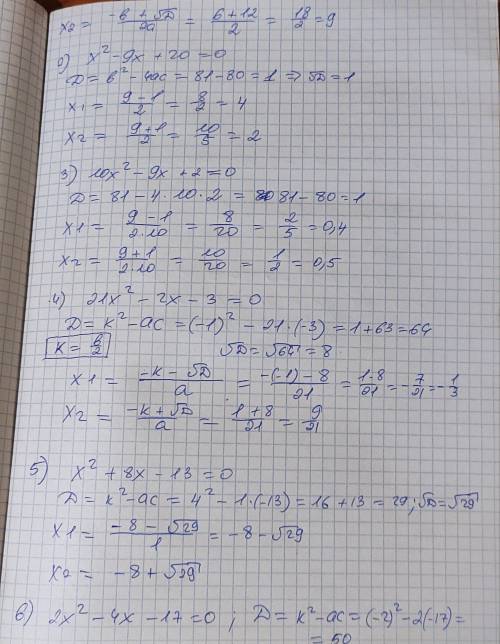 x2 = (-b + √D)/2a = (6+12)/2 = 18/2 = 9
2) x² - 9x + 20 = 0
D = b² - 4ac = 81 - 80 = 1 ⇒ √D = 1
x1 = (9-1)/2 = 8/2 = 4
x2 = (9+1)/2 = 10/5 = 2
3) 10x² - 9x + 2 = 0
D = 81 - 4 · 10 · 2 = 81 - 80 = 1
x1 = (9-1)/(2·10) = 8/20 = 2/5 = 0,4
x2 = (9+1)/(2·10) = 10/20 = 1/2 = 0,5
4) 21x² - 2x - 3 = 0
D = k² - ac = (-1)² - 21·(-3) = 1 + 63 = 64
k = b/2 √D = √64 = 8
x1 = (-k - √D)/a = (-(-1) - 8)/21 = (1-8)/21 = -7/21 = -1/3
x2 = (-k + √D)/a = (1+8)/21 = 9/21
5) x² + 8x - 13 = 0
D = k² - ac = 4² - 1·(-13) = 16 + 13 = 29; √D = √29
x1 = (-8 - √29)/1 = -8 - √29
x2 = -8 + √29
6) 2x² - 4x - 17 = 0; D = k² - ac = (-2)² - 2(-17) =
= 50